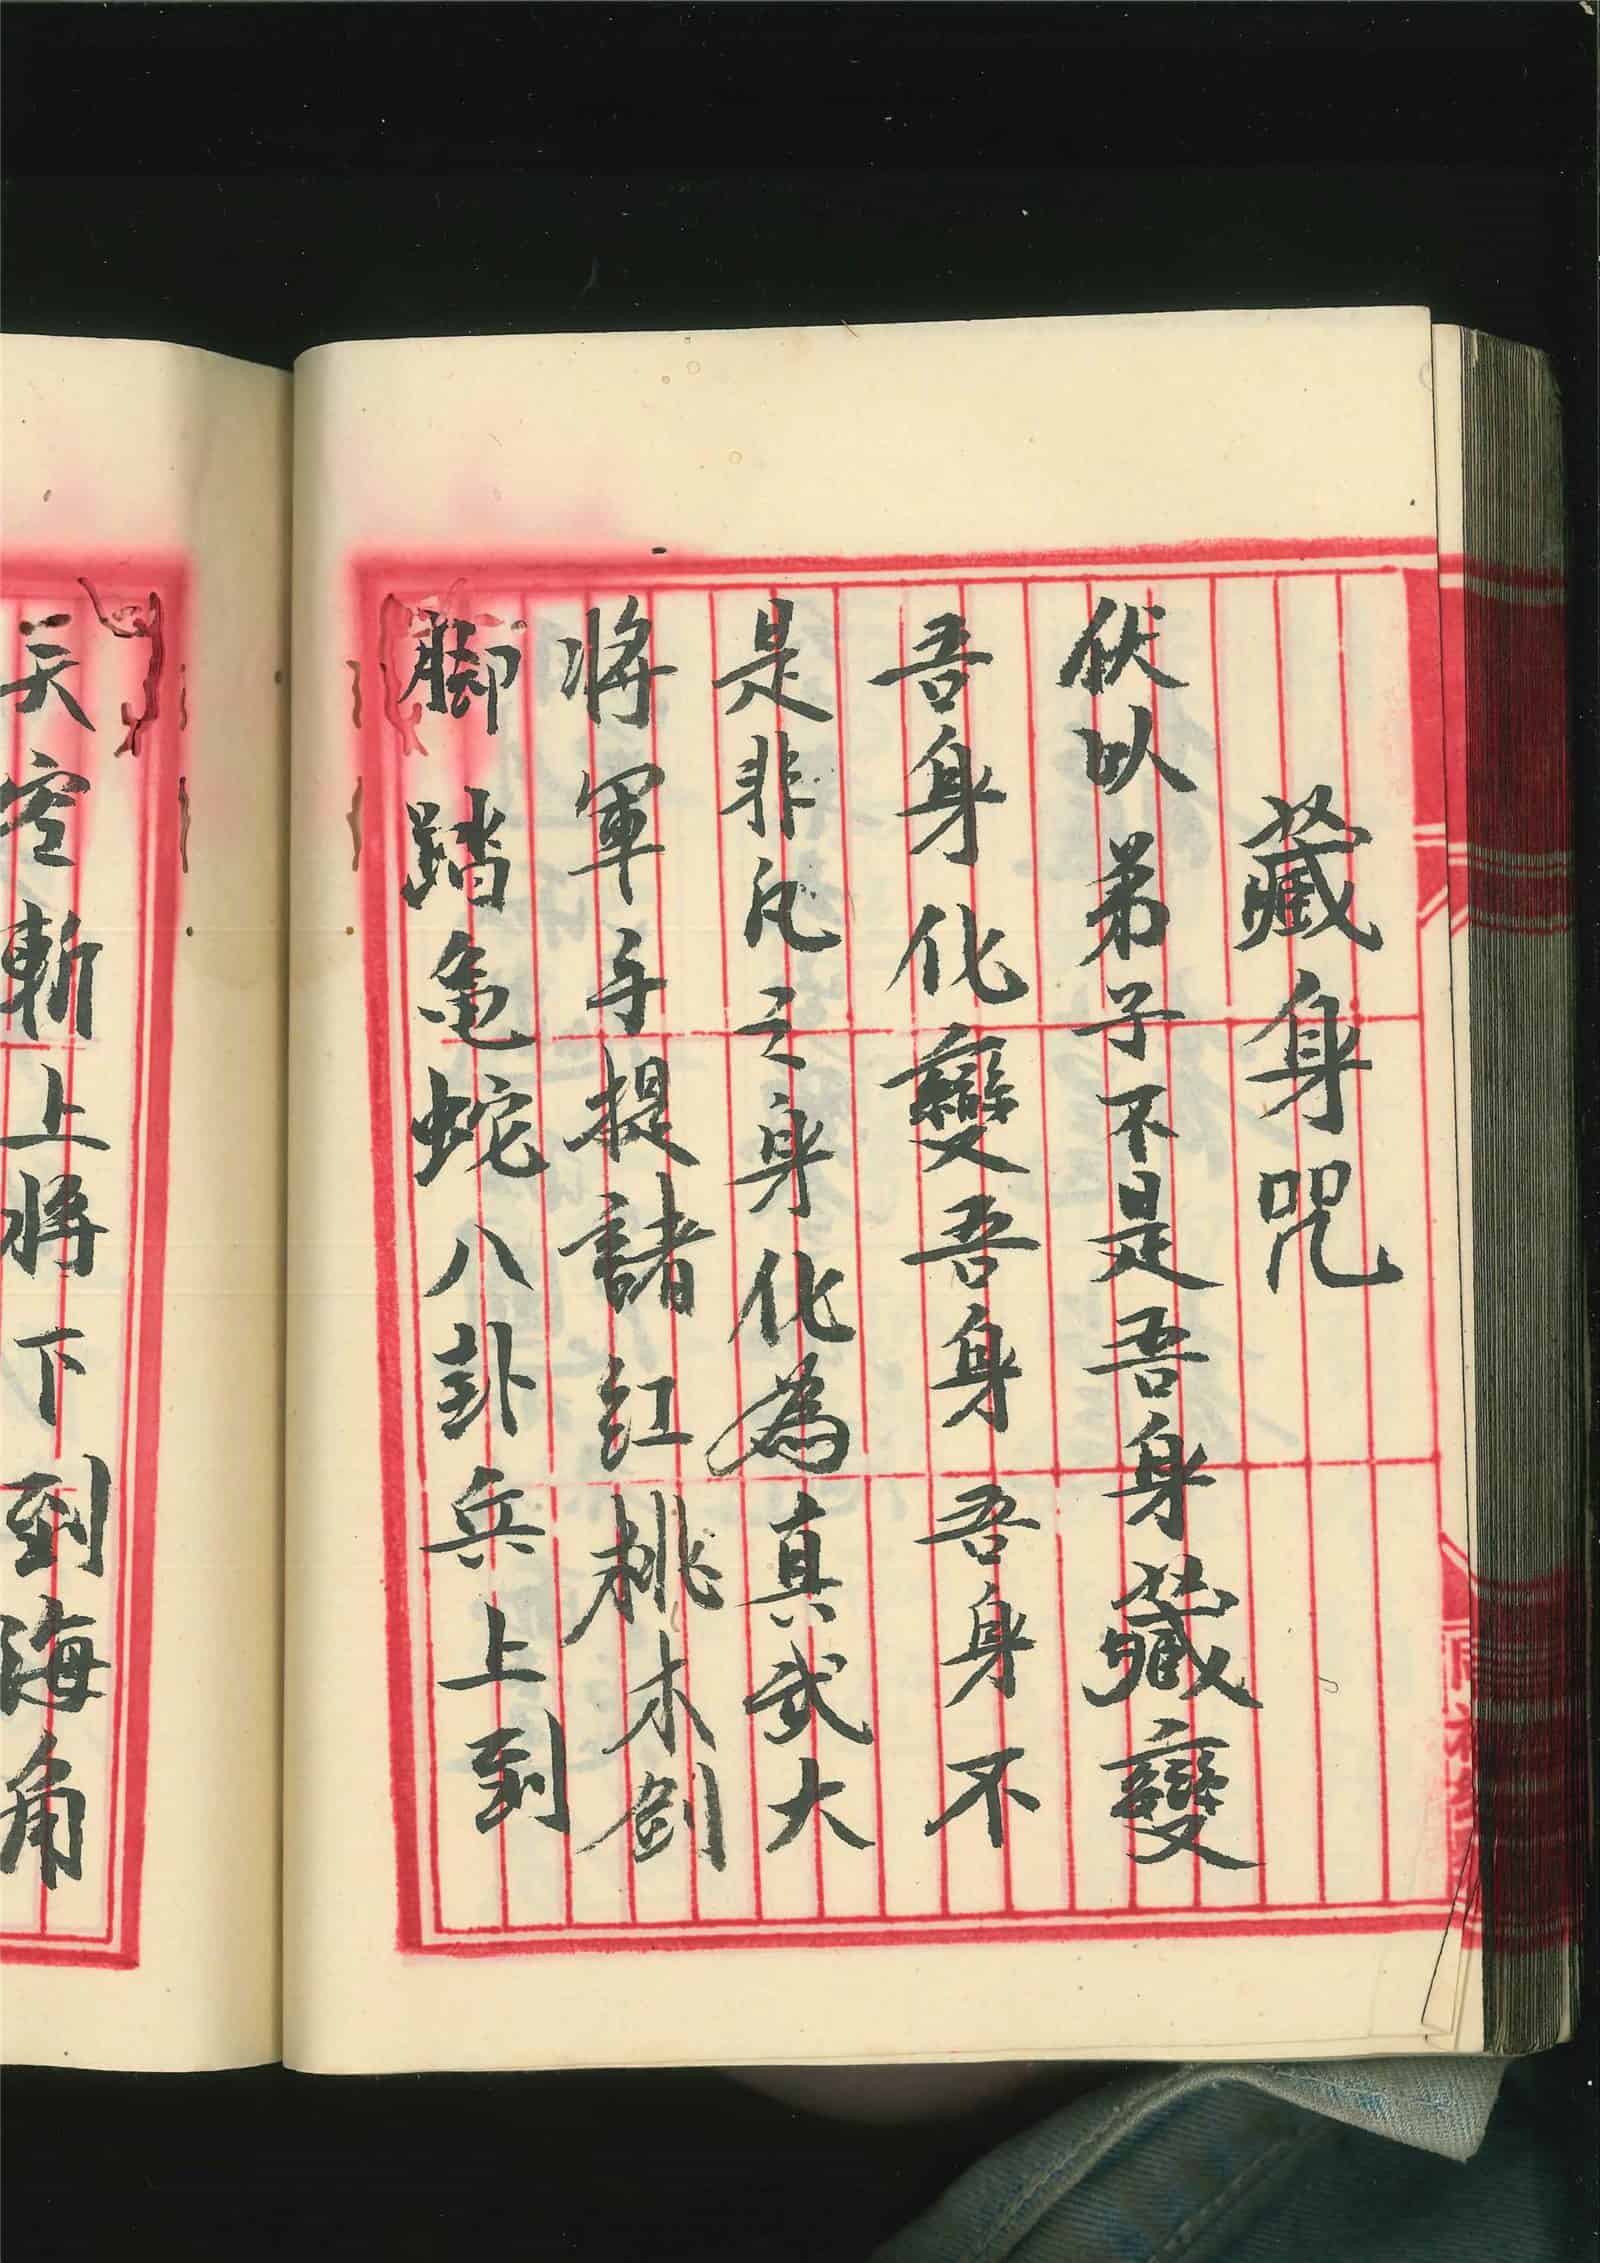 藏身咒
伏以弟子不是吾身藏變
吾身化變吾身吾身不
是非凡之身化為真武大
将軍手提諸红桃木剑
脚踏龟蛇八卦兵上到
天空斬上将下到海角